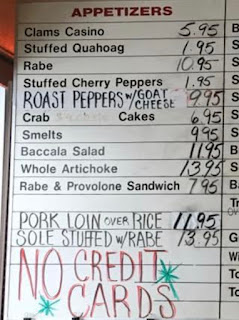 APPETIZERS
Clams Casino 5.95
Stuffed Quahoag 1.95
Rabe 10.95
Stuffed Cherry Peppers 1.95
ROAST PEPPERS W/GOAT CHEESE 9.95
Crab Cakes 6.95
Smelts 9.95
Baccala Salad 11.95
Whole Artichoke 13.95
Rabe & Provolone Sandwich 7.95
PORK LOIN OVER RICE 11.95
SOLE STUFFED W/RABE 13.95
NO CREDIT
CARDS